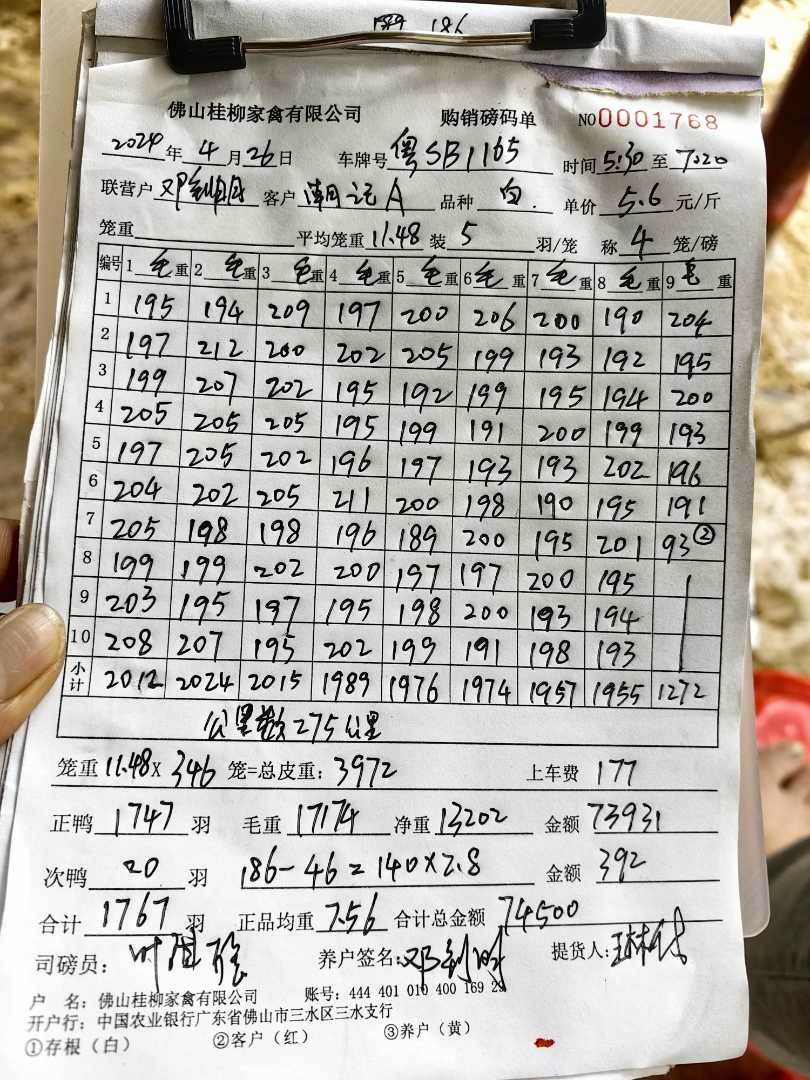 186
佛山桂柳家禽有限公司 购销磅码单 NO0001768
2024年4月26日 车牌号 粤SB1165 时间5:30至7:20
联营户 邓剑明 客户 潮记A 品种 白. 单价 5.6 元/斤
笼重 平均笼重11.48装 5 羽/笼 称 4 笼/磅
编号 1毛重 2毛重 3毛重 4毛重 5毛重 6毛重 7毛重 8毛重 9毛重
1 195 194 209 197 200 206 200 190 204
2 197 212 200 202 205 199 193 192 195
3 199 207 202 195 192 199 195 194 200
4 205 205 205 195 199 191 200 199 193
5 197 205 202 196 197 193 193 202 196
6 204 202 205 211 200 198 190 195 191
7 205 198 198 196 189 200 195 201 93②
8 199 199 202 200 197 197 200 195
9 203 195 197 195 198 200 193 194
10 208 207 195 202 199 191 198 193
小计 2012 2024 2015 1989 1976 1974 1957 1955 1272
公里数275公里
笼重11.48X 346 笼=总皮重:3972 上车费 177
正鸭 1747 羽 毛重 17174 净重 13202 金额 73931
次鸭 20 羽 186-46=140×2.8 金额 392
合计 1767 羽 正品均重 7.56 合计总金额 74500
司磅员: 养户签名: 提货人:
户 名:佛山桂柳家禽有限公司 账号:444 401 010 400 169 29
开户行:中国农业银行广东省佛山市三水区三水支行
①存根(白) ②客户(红) ③养户(黄)